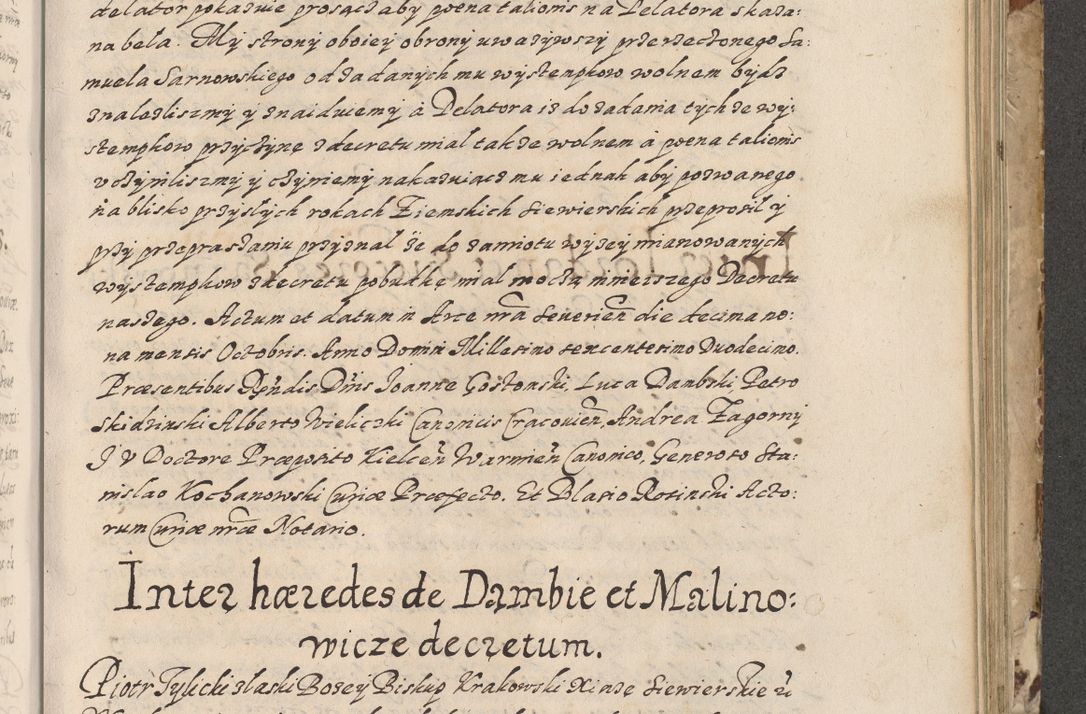 delator pokazuie prosząc aby poena talionis na Delatora skaza:
na beła. My strony oboiey obrony uważywszy przerzeczonego Sa:
muela Sarnowskiego od zadanych mu wystempkow wolnem bydz
znalezlismy y znaiduiemy à Delatora iż do zadania tych że wy:
stempkow przyczynę z decretu miał tak że wolnem à poena talionis
uczynilismy y czyniemy nakazuiącz mu iednak aby pozwanego
na blisko przyslych rokach Ziemskich Siewierskich przeprosil y
przy przepraszaniu przyznal że do zamiotu wyzey mianowanych
wystempkow z decretu pobudkę miał moczą ninieiszego Decretu
naszego. Actum et datum in Arce nrã Severien̄ die decima no:
na mensis Octobris. Anno Domini Millesimo sexcentesimo Duodecimo.
Præsentibus Rñdis Dñis Joanne Gostonski, Luca Dambski Petro
Skidzinski Alberto Wieliczki Canonicis Cracovien̄, Andrea Zagorny
J V Doctore Præposito Kielcen̄ Warmien̄ Canonico, Generoso Sta:
nislao Kochanowski Curiæ Præfecto. Et Blasio Rosinski Acto:
rum Curiæ nrãe Notario.
Inter hæredes de Dąmbie et Malino:
wicze decretum.
Piotr Tylicki z łaski Bozey Biskup Krakowski Xiąże Siewierskie